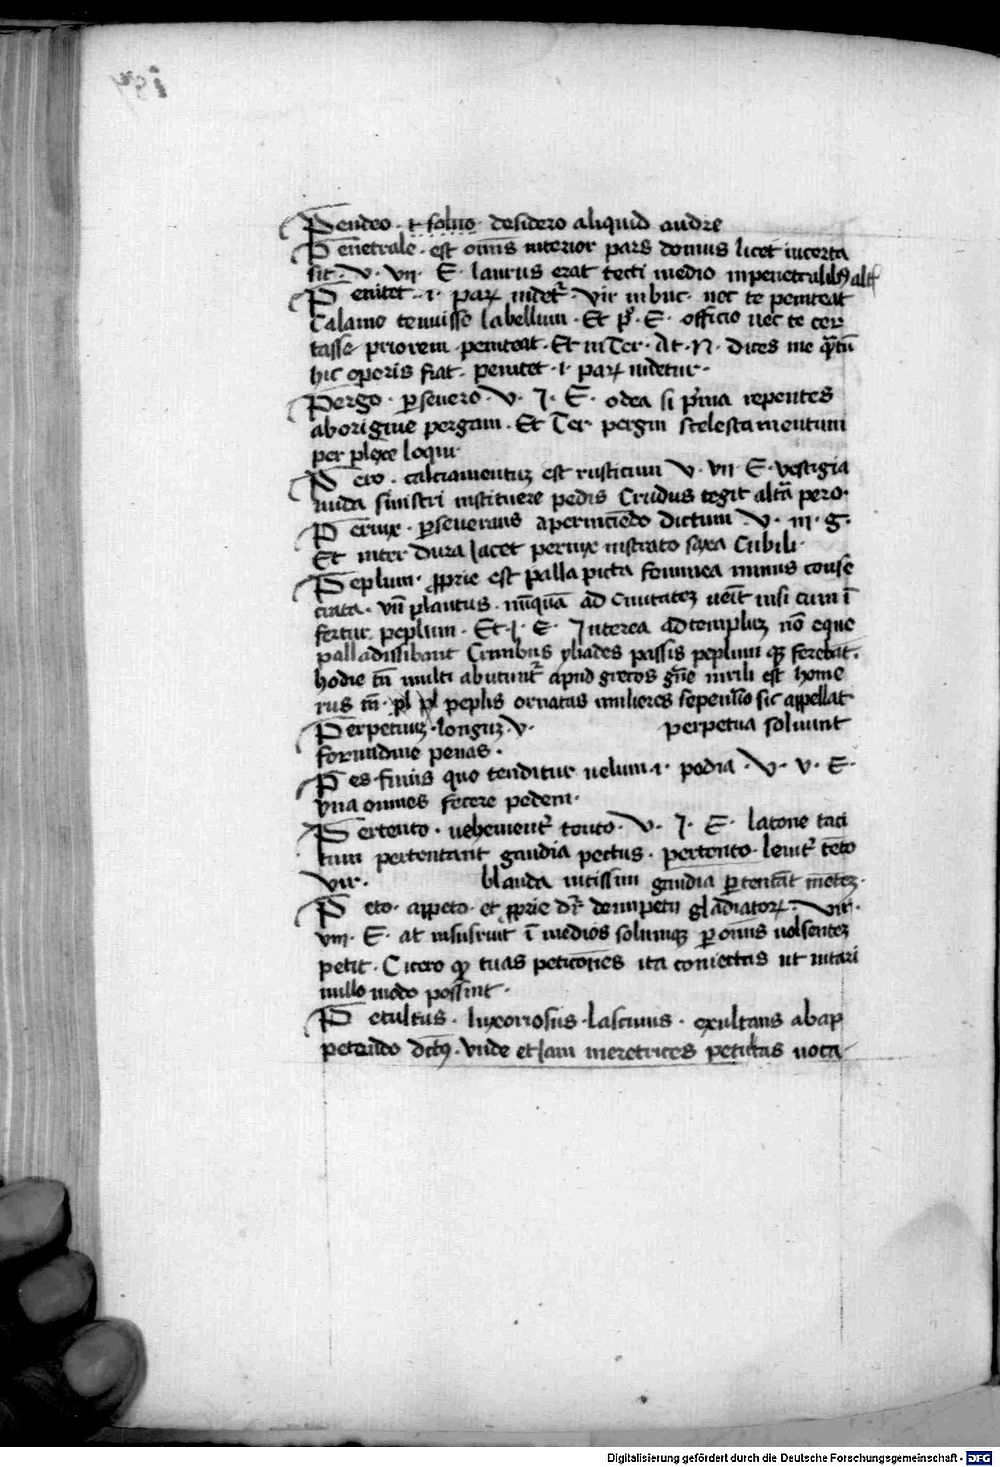 Pendeo · et soluo · desidero aliquid audire
Penetrale · est oīs interior pars domus licet incerta
sit · V · VII · E · laurus erat tecti medio in penetralibꝰ alt
Penitet · i · parꝝ uidetᷣ · Vir in buc · nec te peniteat
Calamo teniuisse labellum · Et pº · E · officio nec te cer
tasse priorem peniteat · Et in Ter · At · N · dices me qᷓtū
hic operis fiat · penitet · i · parꝝ uidetur ·
Pergo · ꝑseuero · V · J · E · odea si pᷓma repentes
aborigine pergam · Et Ter pergin scelesta mentum
per plexe loqui
Pero · calciamentuꝫ est rusticum V · VII · E · vestigia
nuda sinistri instituere pedis Crudus tegit altᷓa pero ·
Pernix · ꝑseuerans a pernicēdo dictum · V · III · G ·
Et inter dura Jacet pernix instrato saxa Cubili ·
Peplum · ꝓprie est palla picta feminea minus conse
crata · vñ plautus · nūquā ad Ciuitateꝫ ueīt nisi cum ī
fertur peplum · Et · J · E · Interea ad templuꝫ nō eque
palladis libant Crinibus yliades passis peplum qꝫ ferebāt ·
hodie tñ multi abutūtᷣ apud grecos gñe uirili est home
rus tñ · pl pl peplis ornatas mulieres sepenūo sic appellat
Perpetuuꝫ · longuꝫ · V · perpetua soluunt
formidine penas ·
Pes · funis quo tenditur uelum · i · podia · V · V · E ·
vna omnes fecere pedem ·
Pertento · uehementᷣ tento · V · J · E · latone taci
tum pertentant gaudia pectus · pertento · leuitᷣ tēto
Vir · blanda uicissim gaudia ꝑtentāt mēteꝫ ·
Peto · appeto · et ꝓprie dr̄ de impetu gladiatorꝝ · Vir ·
VIII · E · at insusruit ī medios solumqꝫ ꝑ om̄is uolsenteꝫ
petit · Cicero qꝫ tuas peticōnes ita coniectas ut uitari
nullo modo possint ·
Petultus · luxoriosus · lasciuus · exultans ab ap
petendo dictꝰ · vnde et Jam meretrices petultas uoca
Digitalisierung gefördert durch die Deutsche Forschungsgemeinschaft - DFG